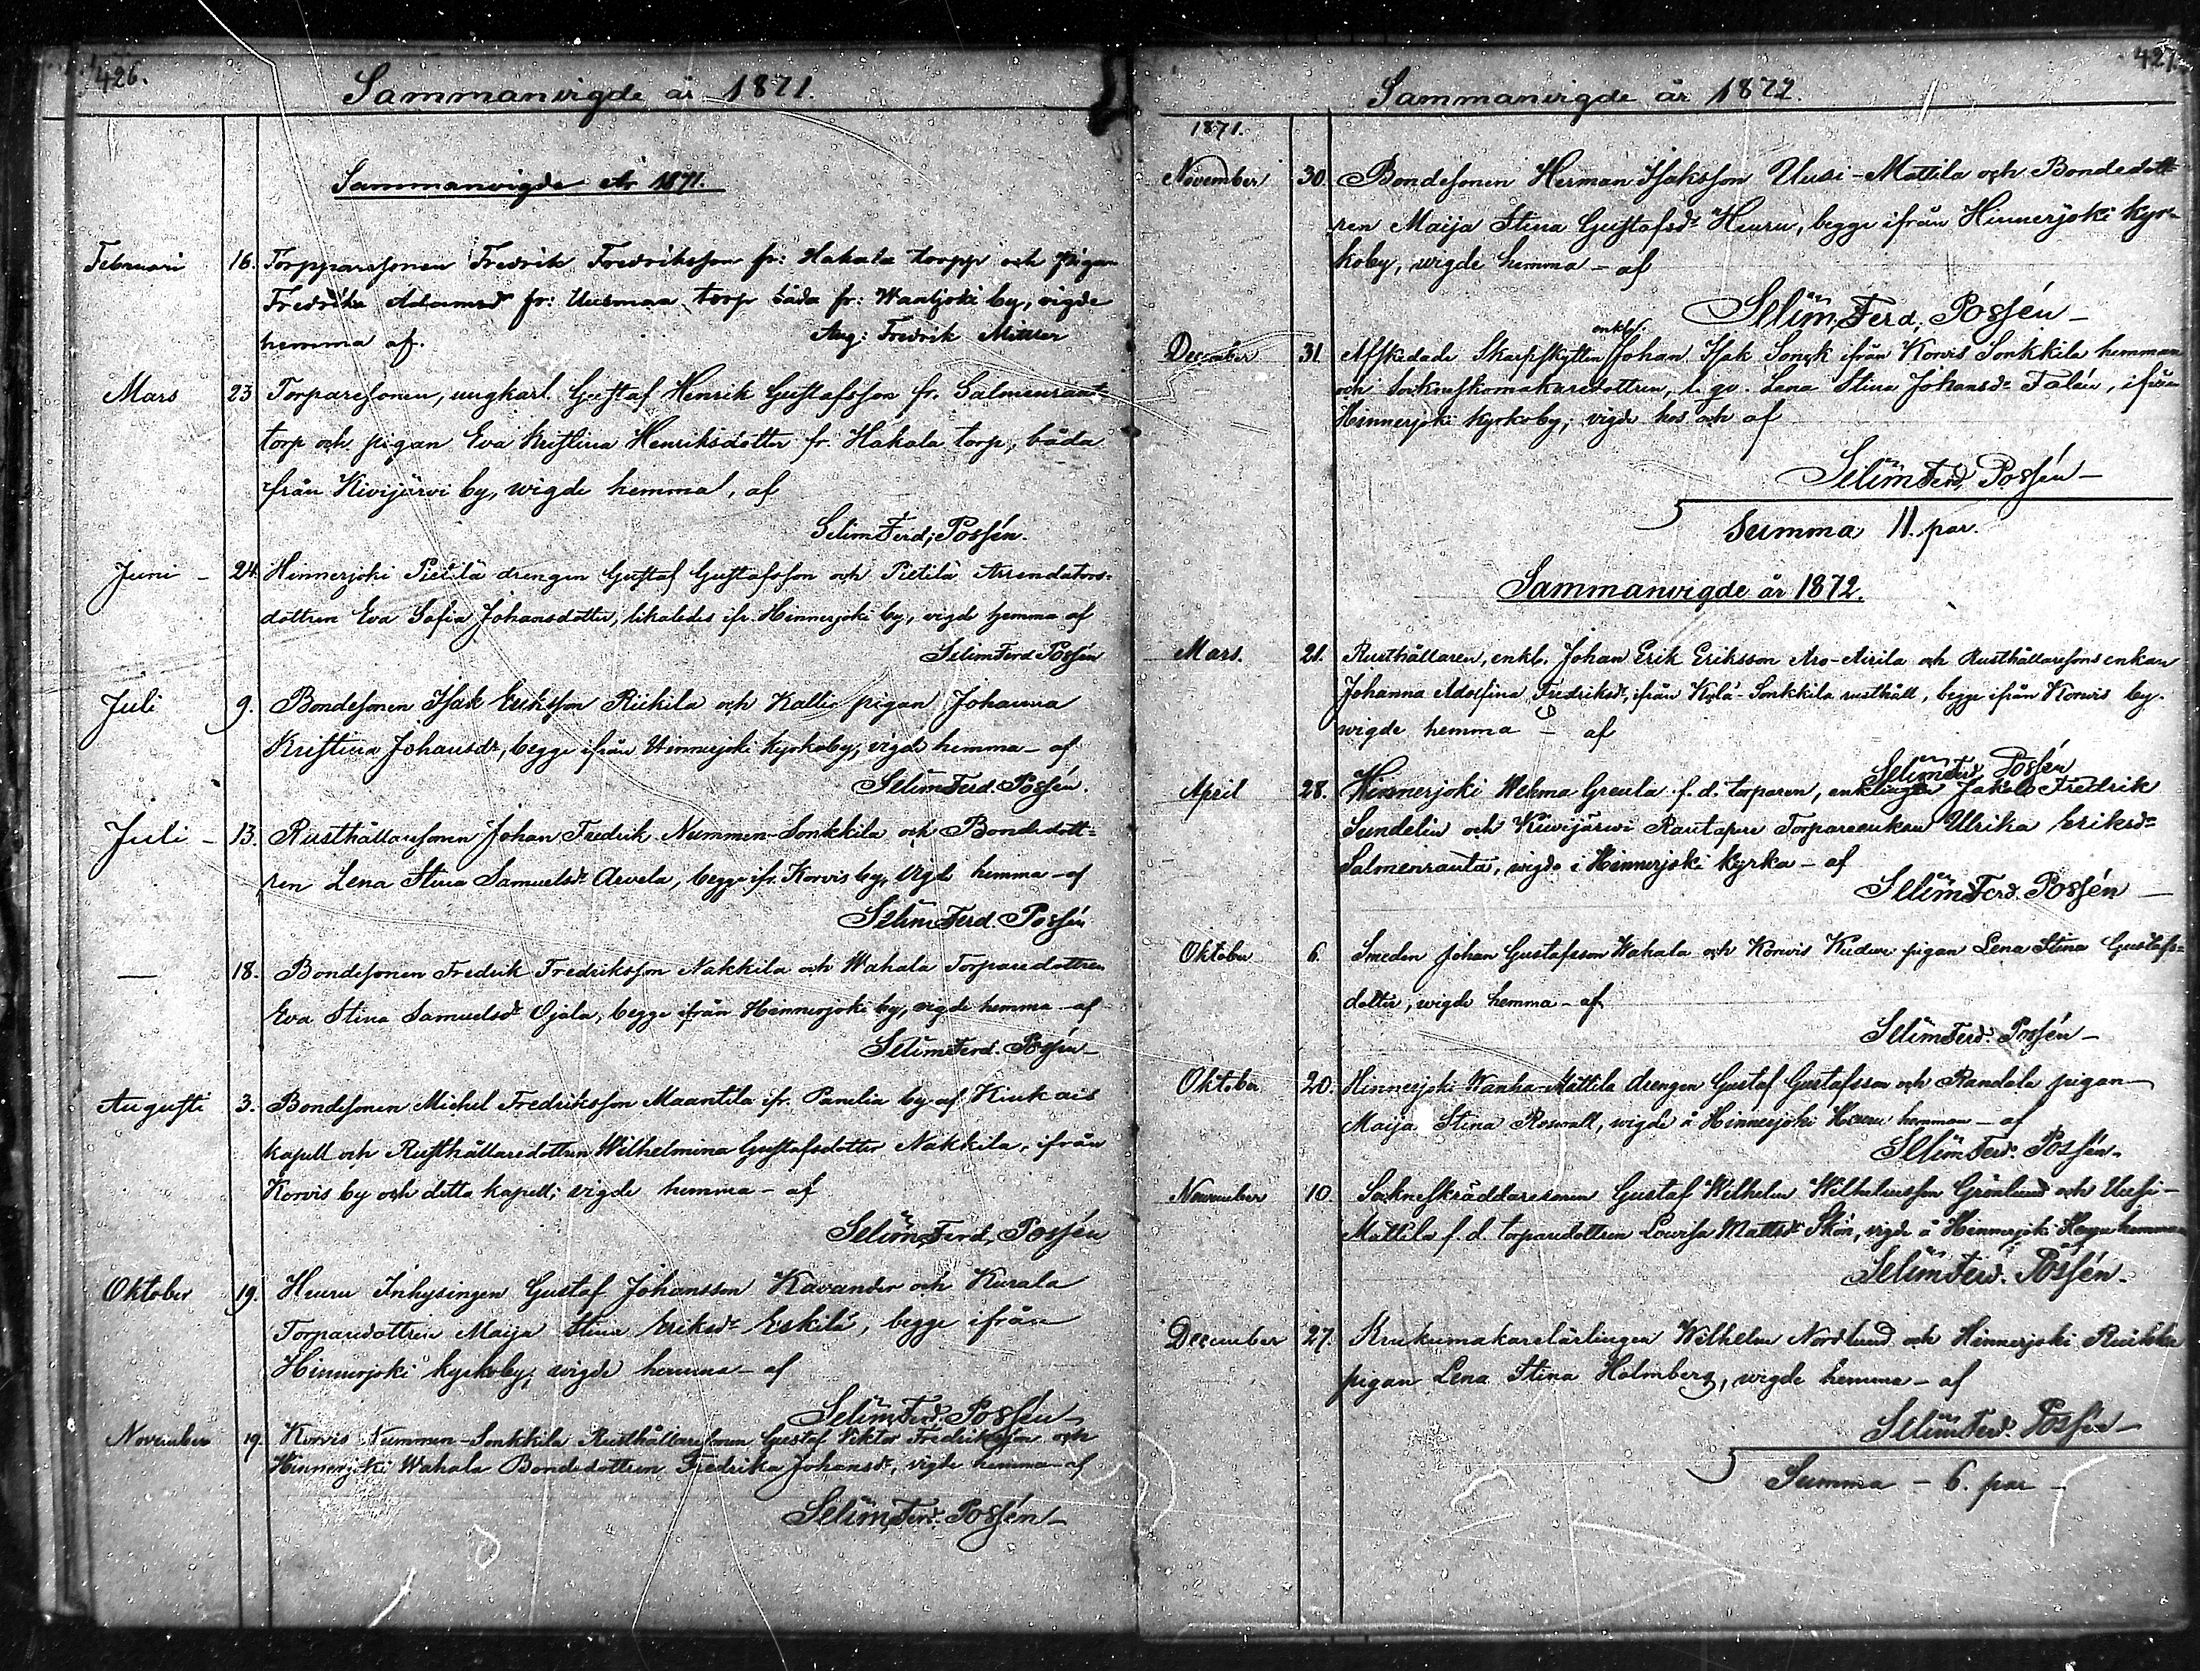 426.
Sammanvigde år 1871.
Sammanvigde År 1871.
Februari 16. Torpparesonen Fredrik Fredriksson fr: Hakala torpp och pigan
Fredrika Adamsdr fr: Uusmaa torp båda fr: Wantjoki by, vigde
hemma af. Aug: Fredrik
Mars 23 Torparesonen, ungkarl. Gustaf Henrik Gustafsson fr. Salmenraut
torp och pigan Eva Kristina Henriksdotter fr. Hakala torp, båda
från Kivijärvi by, wigde hemma, af
Selim Ferd; Possén.
Juni – 24. Hinnerjoki Pietilä drengen Gustaf Gustafsson och Pietilä Arrendators-
dottren Eva Sofia Johansdotter, likaledes ifr. Hinnerjoki by, vigde hemma af
Selim Ferd Possén
Juli 9. Bondesonen Isak Eriksson Riikilä och Kallio pigan Johanna
Kristina Johansdr, begge ifrån Hinnerjoki Kyrkoby, vigde hemma – af
Selim Ferd. Possén.
Juli – 13. Rusthållaresonen Johan Fredrik Nummen-Sonkkila och Bondedott=
ren Lena Stina Samuelsdr Arvela, begge ifr. Korvis by, vigde hemma – af
Selim Ferd. Possén
— 18. Bondesonen Fredrik Fredriksson Nakkila och Wahala Torparedottren
Eva Stina Samuelsdr Ojala, begge ifrån Hinnerjoki by, vigde hemma – af
Selim Ferd. Possén –
Augusti 3. Bondesonen Michel Fredriksson Maantila ifr. Panelia by af Kiukais
kapell och Rusthållaredottren Wilhelmina Gustafsdotter Nakkila, ifrån
Korvis by och detta kapell; vigde hemma – af
Selim Ferd, Possén
Oktober 19. Heuru Inhysingen Gustaf Johansson Kavander och Kurala
Torparedottren Maija Stina Eriksdr Eskilä, begge ifrån
Hinnerjoki kyrkoby, wigde hemma – af
Selim Ferd. Possén –
November 19. Korvis Nummen-Sonkkila Rusthållaresonen Gustaf Viktor Fredriksson och
Hinnerjoki Wahala Bondedottren Fredrika Johansdr, vigde hemma – af
Selim Ferd. Possén –
427.
Sammanvigde år 1872.
1871.
November 30. Bondesonen Herman Isaksson Uusi-Mattila och Bondedott=
ren Maija Stina Gustafsdr Heuru, begge ifrån Hinnerjoki kyr-
koby, wigde hemma – af
Selim Ferd. Possén –
enkl.
December 31. Afskedade Skarpskytten Johan Isak Sonck ifrån Korvis Sonkkila hemman
och Lena Stina Johansdr Talén, ifrån
Hinnerjoki kyrkoby, vigde hos och af
Selim Ferd, Possén –
Summa 11. par.
Sammanvigde år 1872.
Mars. 21. Rusthållaren, enkl. Johan Erik Eriksson Aro-Airila och Rusthållaresonsenkan
Johanna Adolfina Fredriksdr, ifrån Kylä-Sonkkila rusthåll, begge ifrån Korvis by.
wigde hemma – af
Selim Ferd. Possén
April 28. Hinnerjoki Wehma Greula f. d. torparen, enklingen Jakob Fredrik
Sundelin och Kivijärvi Rautapere Torpareenkan Ulrika Eriksdr
Salmenrauta, wigde i Hinnerjoki kyrka – af
Selim Ferd. Possén –
Oktober 6. Smeden Johan Gustafsson Wahala och Korvis pigan Lena Stina Gustafs=
dotter, wigde hemma – af
Selim Ferd. Possén –
Oktober 20. Hinnerjoki Wanha-Mattila drengen Gustaf Gustafsson och Randala pigan
Maija Stina Roswall, wigde å Hinnerjoki Heuru hemman – af
Selim Ferd. Possén.
November 10. Sockneskräddaresonen Gustaf Wilhelm Wilhelmsson Grönlund och Uusi-
Mattila f. d. torparedottren Lovisa Mattsdr Skön, vigde å Hinnerjoki hemman
Selim Ferd. Possén.
December 27. Krukomakarelärlingen Wilhelm Nordlund och Hinnerjoki
pigan Lena Stina Holmberg, wigde hemma – af
Selim Ferd. Possén –
Summa – 6. par –